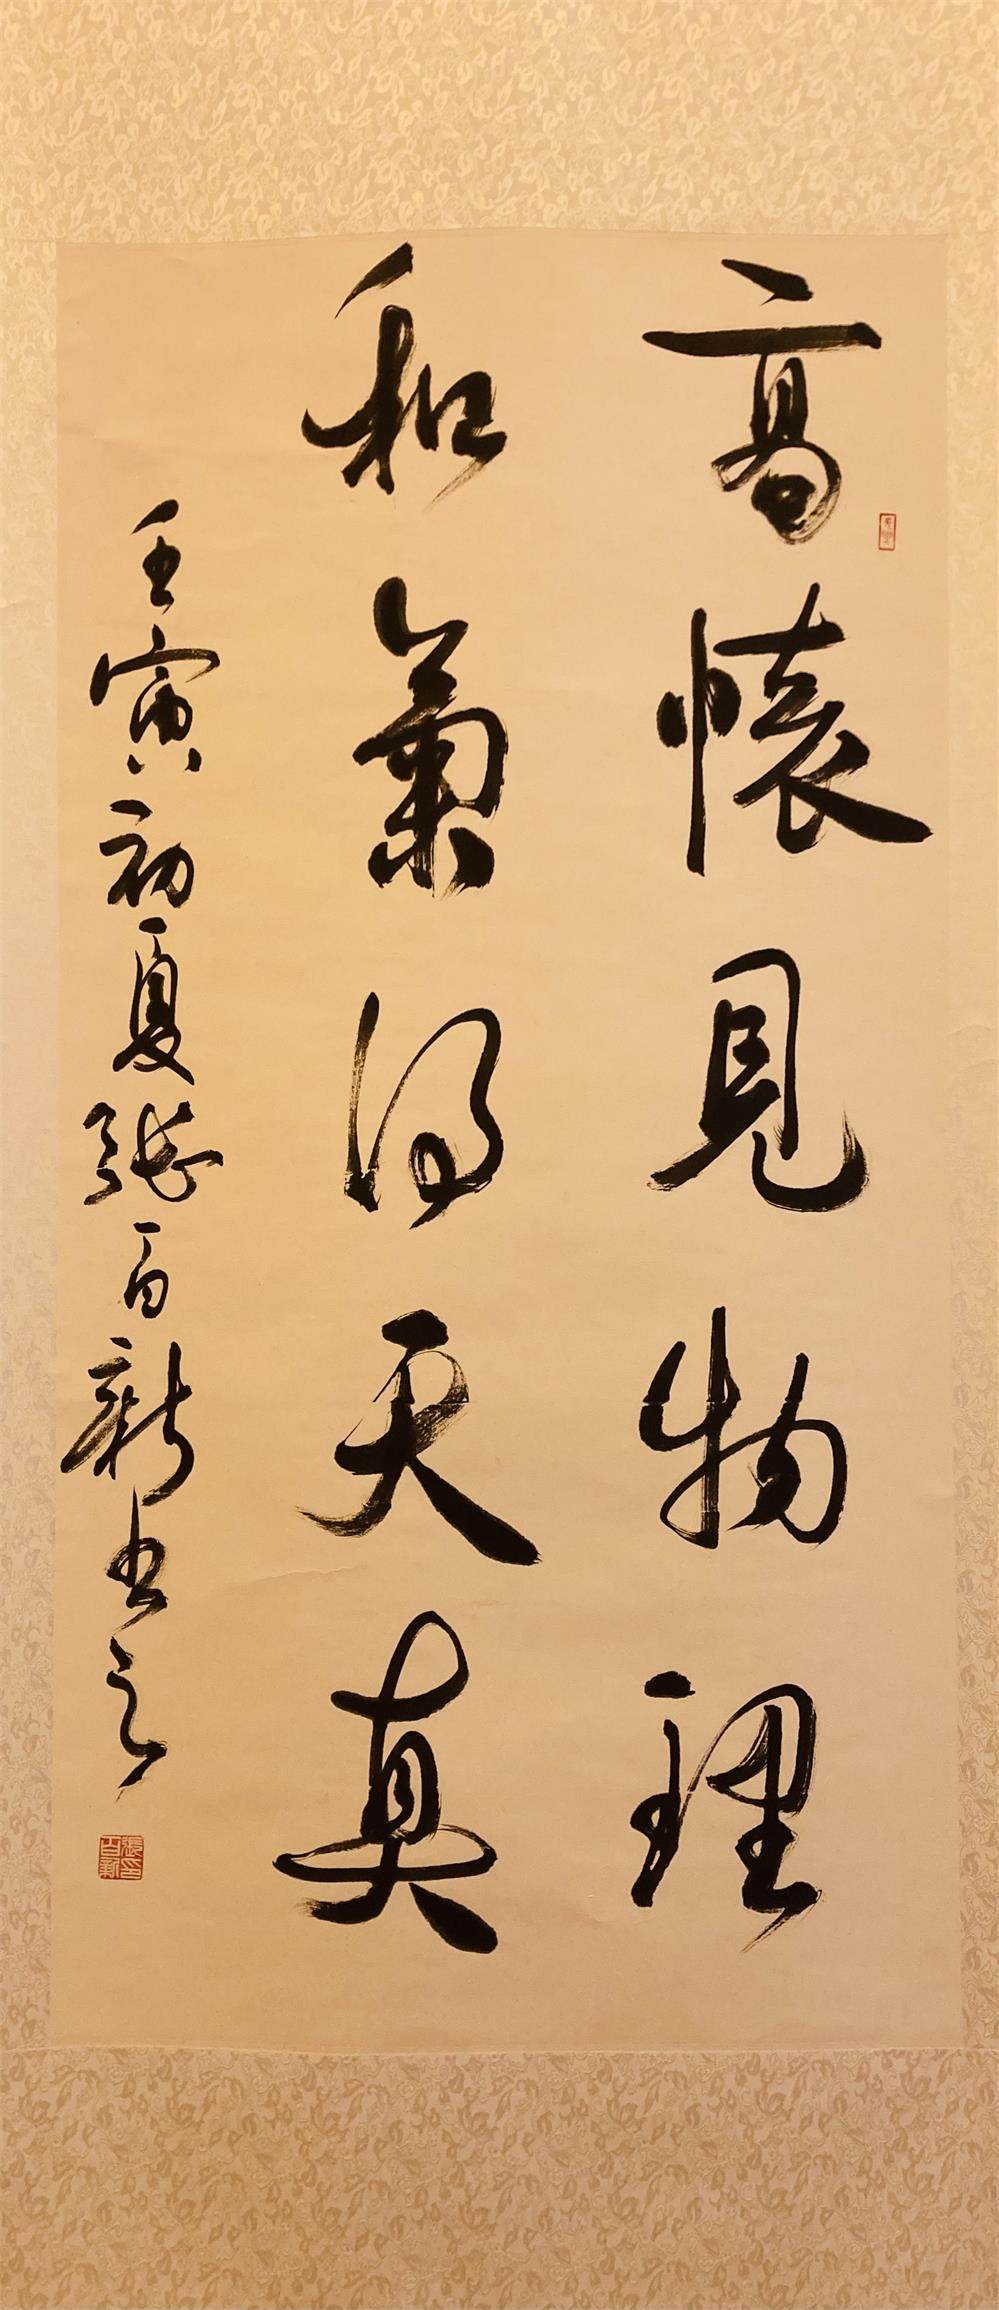 高懷見物理
和氣得天真
壬寅初夏張百新书之
張百新印